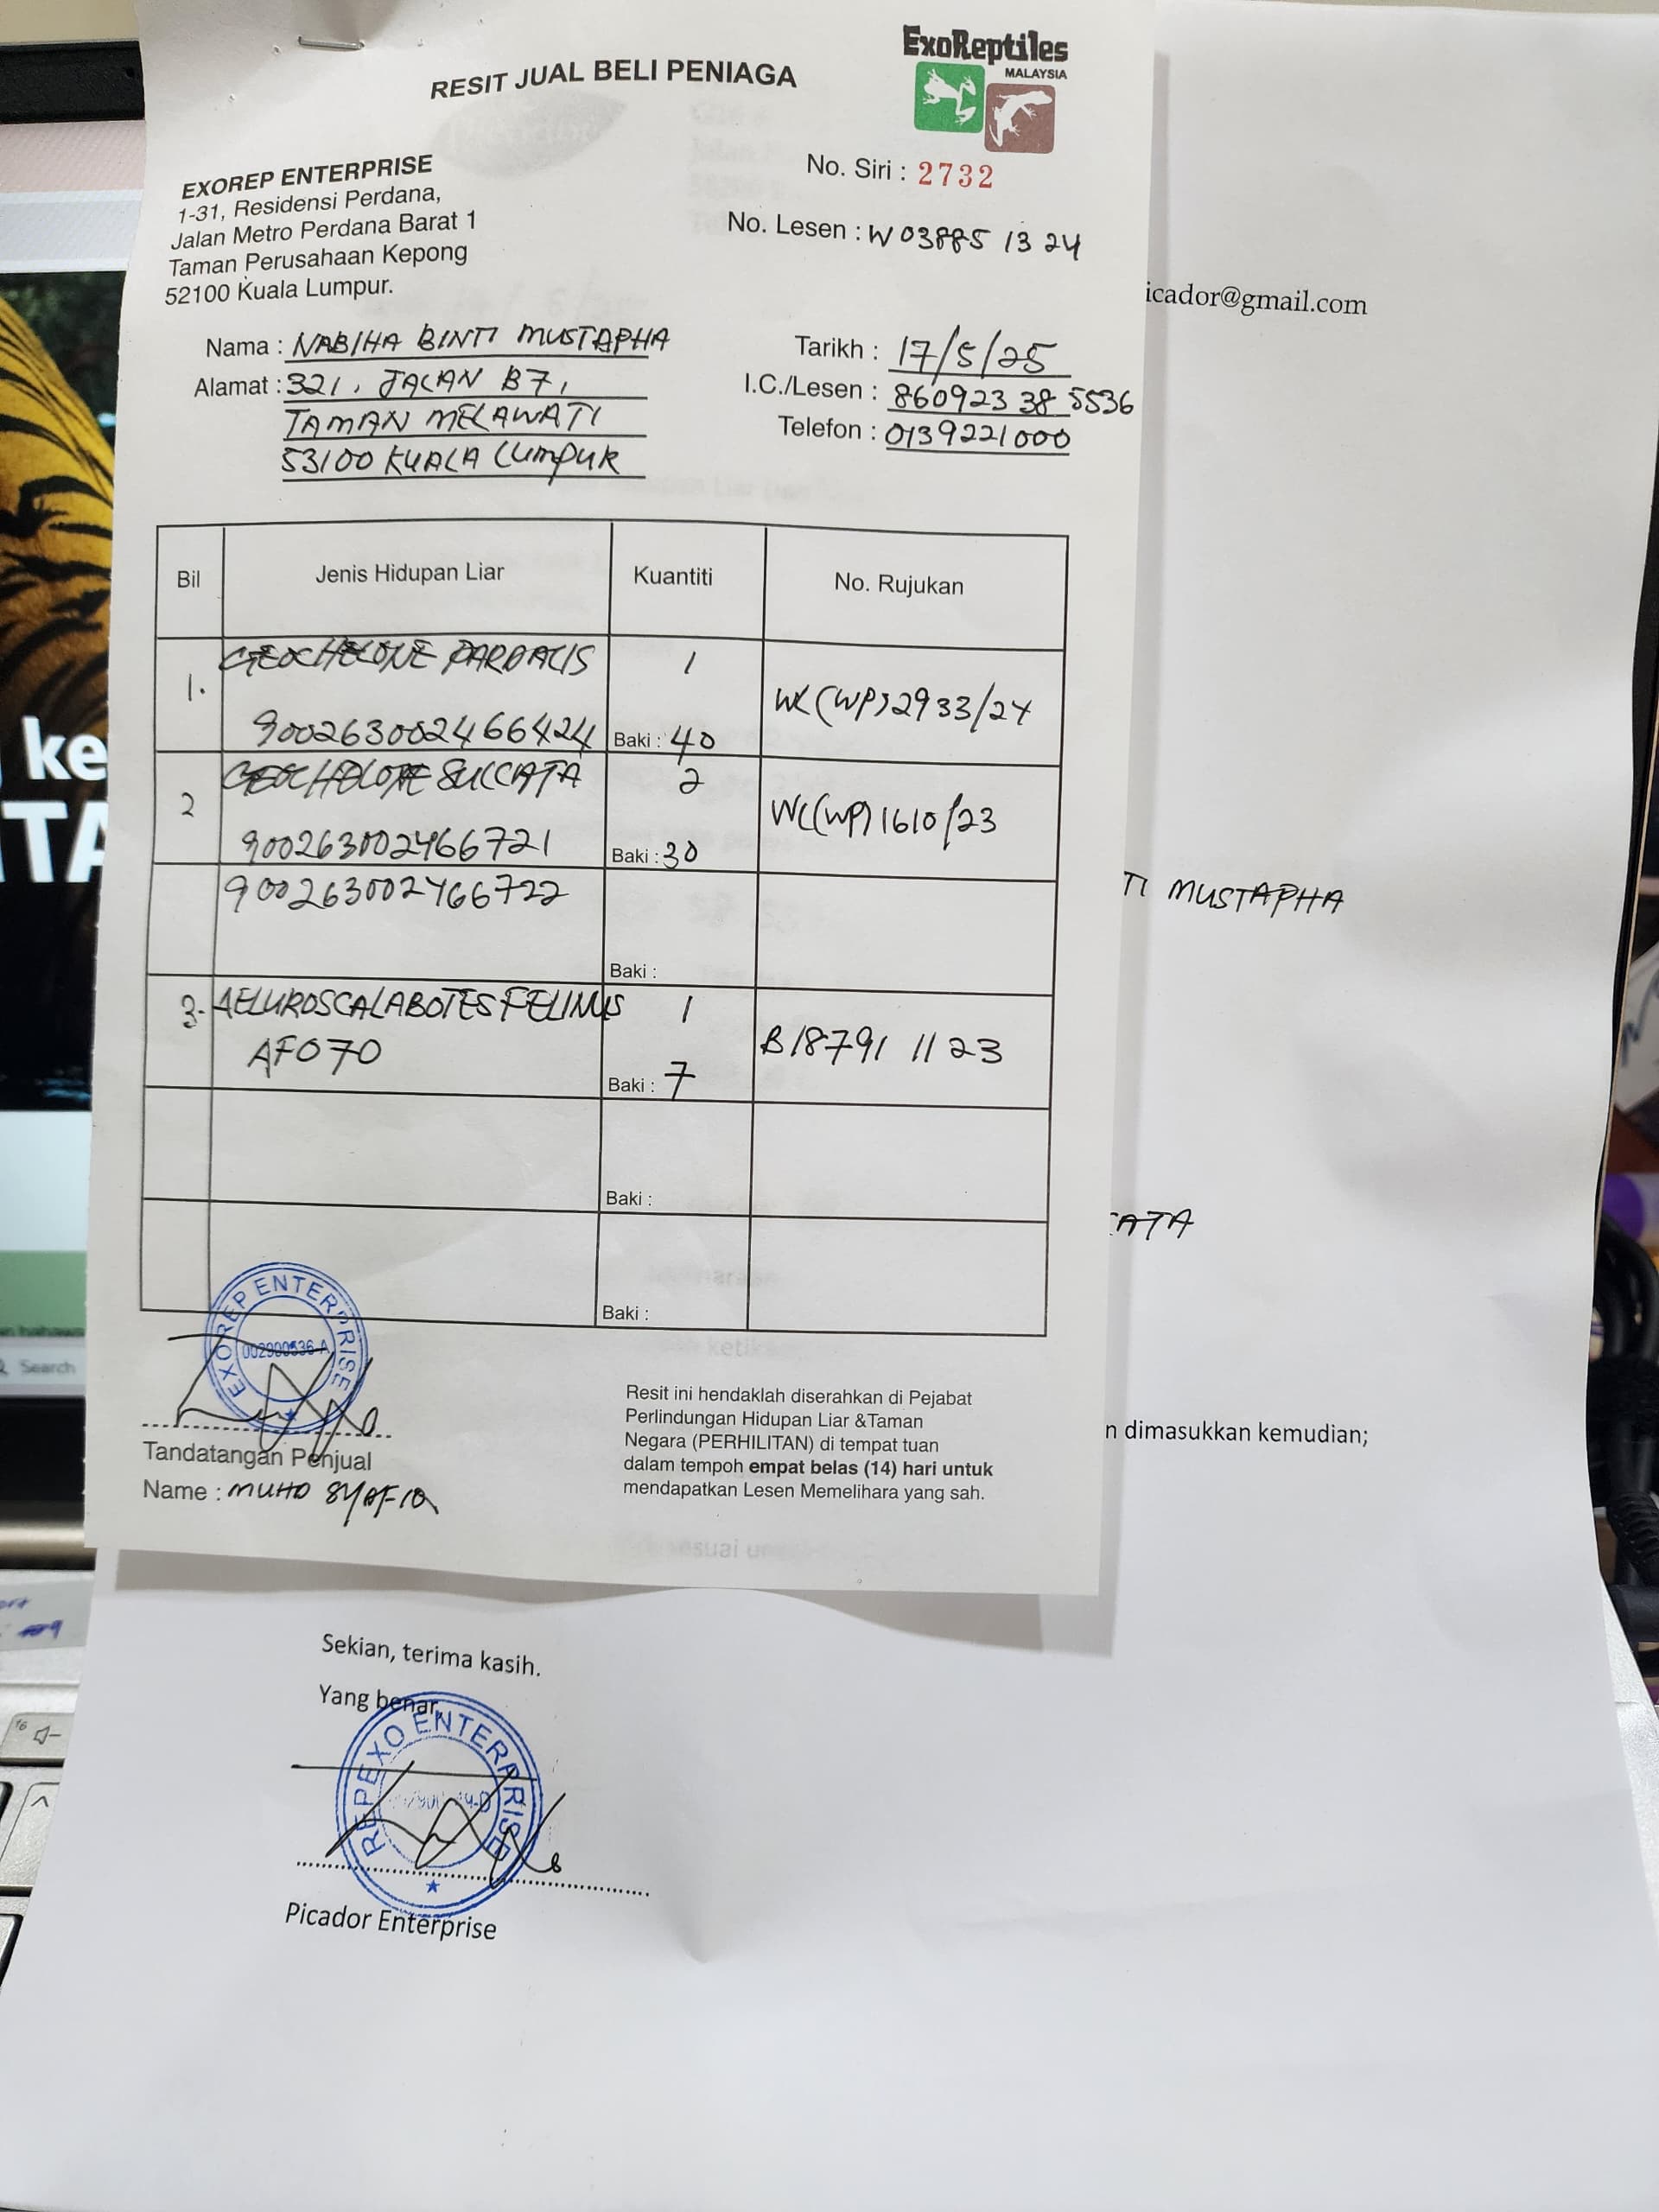 ExoReptiles
MALAYSIA
RESIT JUAL BELI PENIAGA
No. Siri : 2732
EXOREP ENTERPRISE
1-31, Residensi Perdana,
Jalan Metro Perdana Barat 1
Taman Perusahaan Kepong
52100 Kuala Lumpur.
No. Lesen : W 03885 13 24
Nama : NABIHA BINTI MUSTAPHA
Alamat : 321, JALAN B7,
TAMAN MELAWATI
53100 KUALA LUMPUR
Tarikh : 17/5/25
I.C./Lesen : 860923 38 5536
Telefon : 0139221000
Bil Jenis Hidupan Liar Kuantiti No. Rujukan
1. GEOCHELONE PARDALIS 1
900263002466424 Baki : 40 WL(WP)2933/24
2 GEOCHELONE SULCATA 2
900263002466721 Baki : 30 WL(WP)1610/23
900263002466722
Baki :
3. AELUROSCALABOTES FELINUS 1
AF070 Baki : 7 B18791 11 23
Baki :
Baki :
EXOREP ENTERPRISE
002900536-A
Tandatangan Penjual
Name : MUHD SYAFIQ
Resit ini hendaklah diserahkan di Pejabat
Perlindungan Hidupan Liar &Taman
Negara (PERHILITAN) di tempat tuan
dalam tempoh empat belas (14) hari untuk
mendapatkan Lesen Memelihara yang sah.
icador@gmail.com
TI MUSTAPHA
CATA
n dimasukkan kemudian;
Sekian, terima kasih.
Yang benar,
REPEXO ENTERPRISE
Picador Enterprise
ke
TA
Search